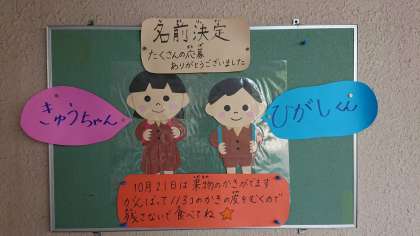 名前決定
たくさんの応募
ありがとうございました
きゅうちゃん
ひがしくん
10月21日は果物のかきがでます
がんばって113コのかきの皮をむくので
残さないで食べてね